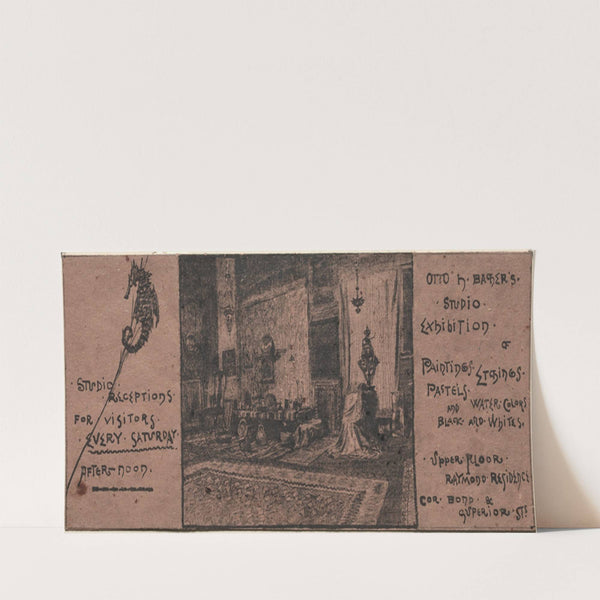 STUDIO
RECEPTIONS
FOR VISITORS
EVERY SATURDAY
AFTER-NOON.
OTTO H. BACHER'S.
STUDIO.
EXHIBITION.
OF
PAINTINGS. ETCHINGS.
PASTELS.
AND WATER-COLORS
BLACK-AND-WHITES.
UPPER FLOOR.
RAYMOND RESIDENCE
COR. BOND &
SUPERIOR STS